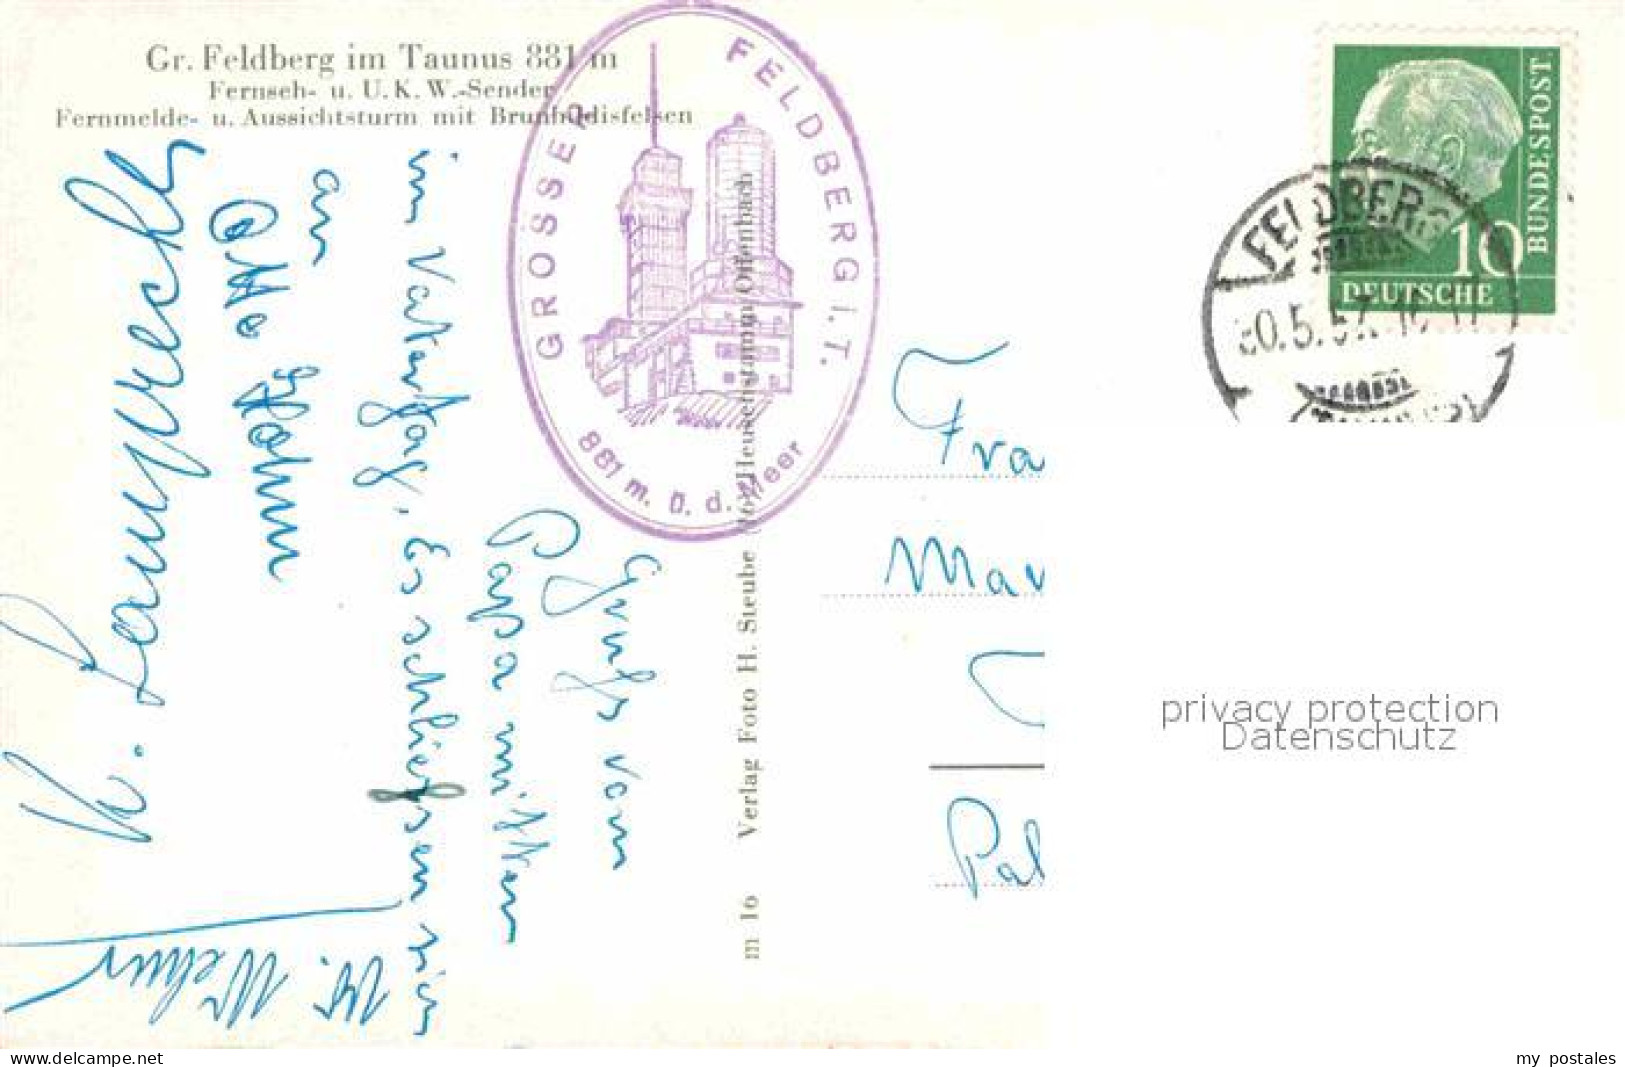 Gr. Feldberg im Taunus 881 m
Fernseh- u. U.K.W.-Sender
Fernmelde- u. Aussichtsturm mit Brunhildisfelsen
GROSSER FELDBERG I. T.
881 m. ü. d. Meer
BUNDESPOST
10
DEUTSCHE
FELDBERG
30.5.57
Gruß vom
Papa mitten
im Vatertag, Es schließen sich
an
Otto Hohm
m 16 Verlag Foto H. Steube (16) Heusenstamm Offenbach
Fra
Mar
Pal
privacy protection
Datenschutz
www.delcampe.net
my postales